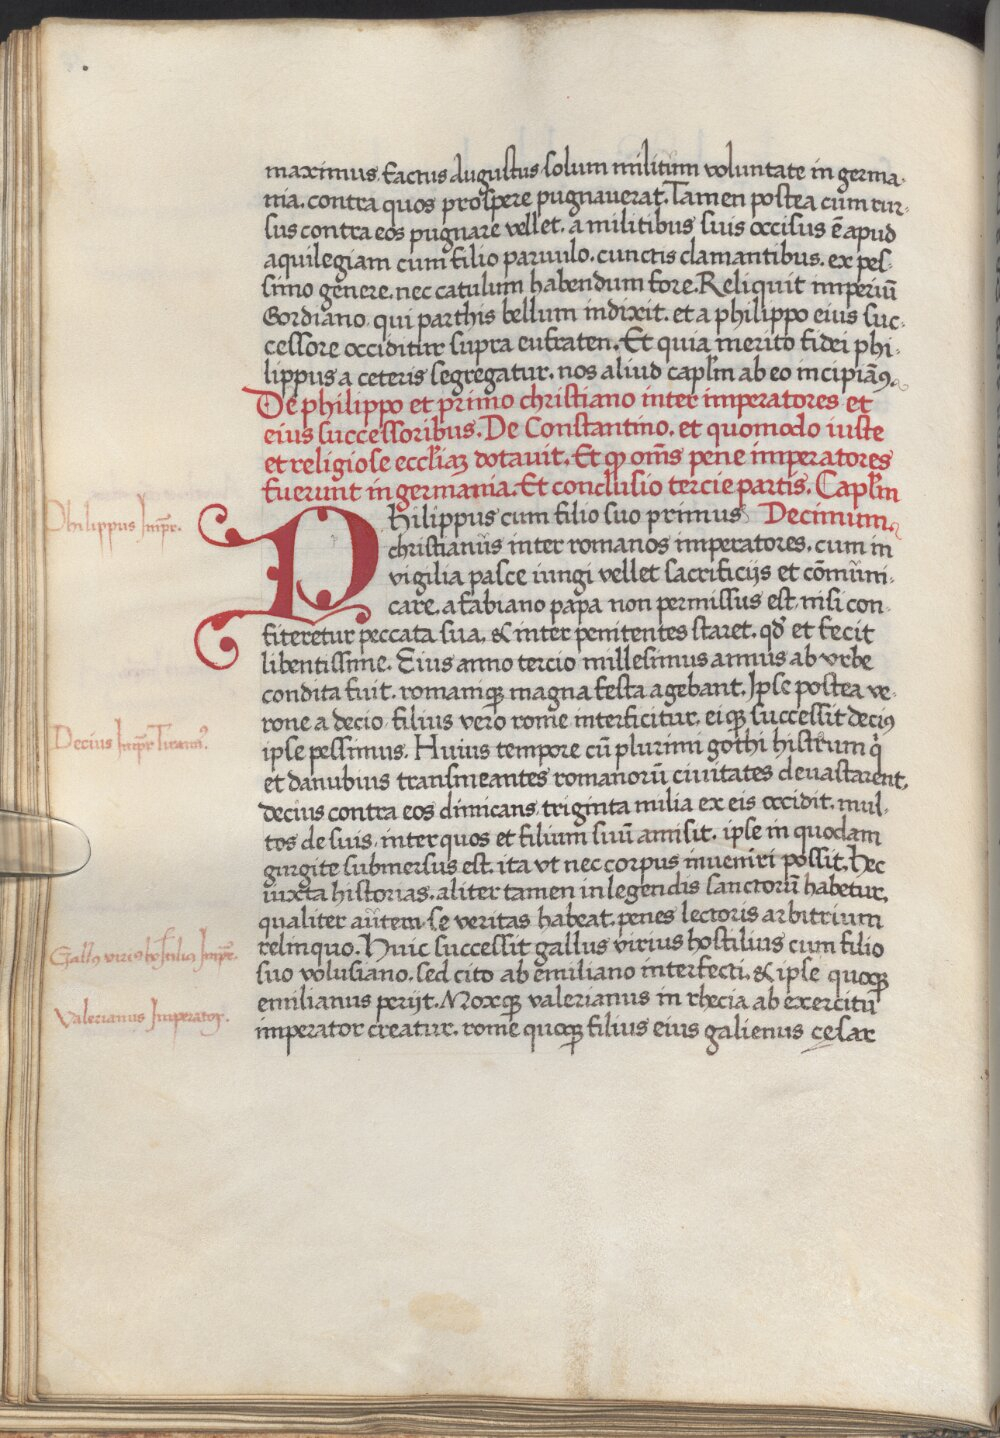 maximus factus augustus solum militum voluntate in germa-
nia. contra quos prospere pugnauerat. Tamen postea cum rur-
sus contra eos pugnare vellet. a militibus suis occisus ē apud
aquilegiam cum filio paruulo. cunctis clamantibus. ex pes-
simo genere. nec catulum habendum fore. Reliquit imperiū
Gordiano. qui parthis bellum indixit. et a philippo eius suc-
cessore occiditur supra eufraten. Et quia merito fidei phi-
lippus a ceteris segregatur. nos aliud caplm ab eo incipiāꝰ.
De philippo et primo christiano inter imperatores et
eius successoribus. De Constantino. et quomodo iuste
et religiose eccliaꝫ dotauit. Et ꝙ om̄s pene imperatores
fuerunt in germania. Et conclusio tercie partis. Caplm
Philippus Imp̄r.
Philippus cum filio suo primus Decimum.
christianus inter romanos imperatores. cum in
vigilia pasce iungi vellet sacrificijs et cōmuni-
care. a fabiano papa non permissus est, nisi con-
fiteretur peccata sua. & inter penitentes staret. qd̄ et fecit
libentissime. Eius anno tercio millesimus annus ab vrbe
condita fuit. romaniqꝫ magna festa agebant. Ipse postea ve-
rone a decio. filius vero rome interficitur. eiqꝫ successit deciꝰ
Decius Imp̄r Tirannꝰ.
ipse pessimus. Huius tempore cū plurimi gothi histrum q̇
et danubius transmeantes romanorū ciuitates deuastarent,
decius contra eos dimicans triginta milia ex eis occidit. mul-
tos de suis, inter quos et filium suū amisit. ipse in quodam
gurgite submersus est. ita vt nec corpus inueniri possit. Hec
iuxta historias. aliter tamen in legendis sanctorū habetur,
qualiter aūtem se veritas habeat. penes lectoris arbitrium
relinquo. Huic successit gallus virius hostilius cum filio
Gallꝰ viriꝰ hostiliꝰ Imp̄r.
suo volusiano. sed cito ab emiliano interfecti. & ipse quoqꝫ
emilianus perijt. Moxqꝫ valerianus in rhecia ab exercitu
Valerianus Imperator.
imperator creatur. rome quoqꝫ filius eius galienus cesar